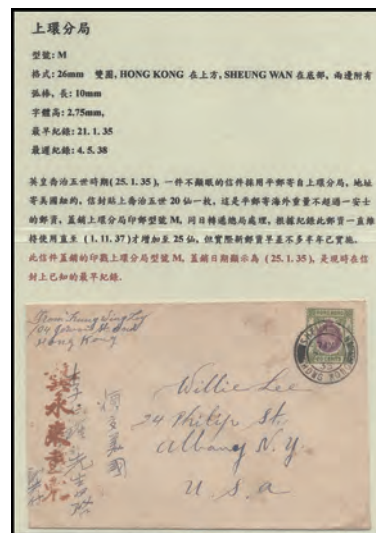 上環分局
型號: M
格式: 26mm 雙圈, HONG KONG 在上方, SHEUNG WAN 在底部, 兩邊附有
弧棒, 長: 10mm
字體高: 2.75mm,
最早紀錄: 21.1.35
最遲紀錄: 4.5.38
英皇喬治五世時期( 25.1.35), 一件不顯眼的信件採用平郵寄自上環分局, 地址
寄美國紐約, 信封貼上喬治五世 20仙一枚, 這是平郵寄海外重量不超過一安士
的郵資, 蓋銷上環分局印郵型號 M, 同日轉遞總局處理, 根據紀錄此郵資一直維
持使用直至 (1.11.37)才增加至 25仙, 但實際新郵資早差不多半年已實施.
此信件蓋銷的印戳上環分局型號 M, 蓋銷日期顯示為 (25.1.35), 是現時在信
封上已知的最早紀錄.
Hong Kong
Willie Lee
24 Philip St.,
Albany N.Y.
U.S.A
HONG KONG